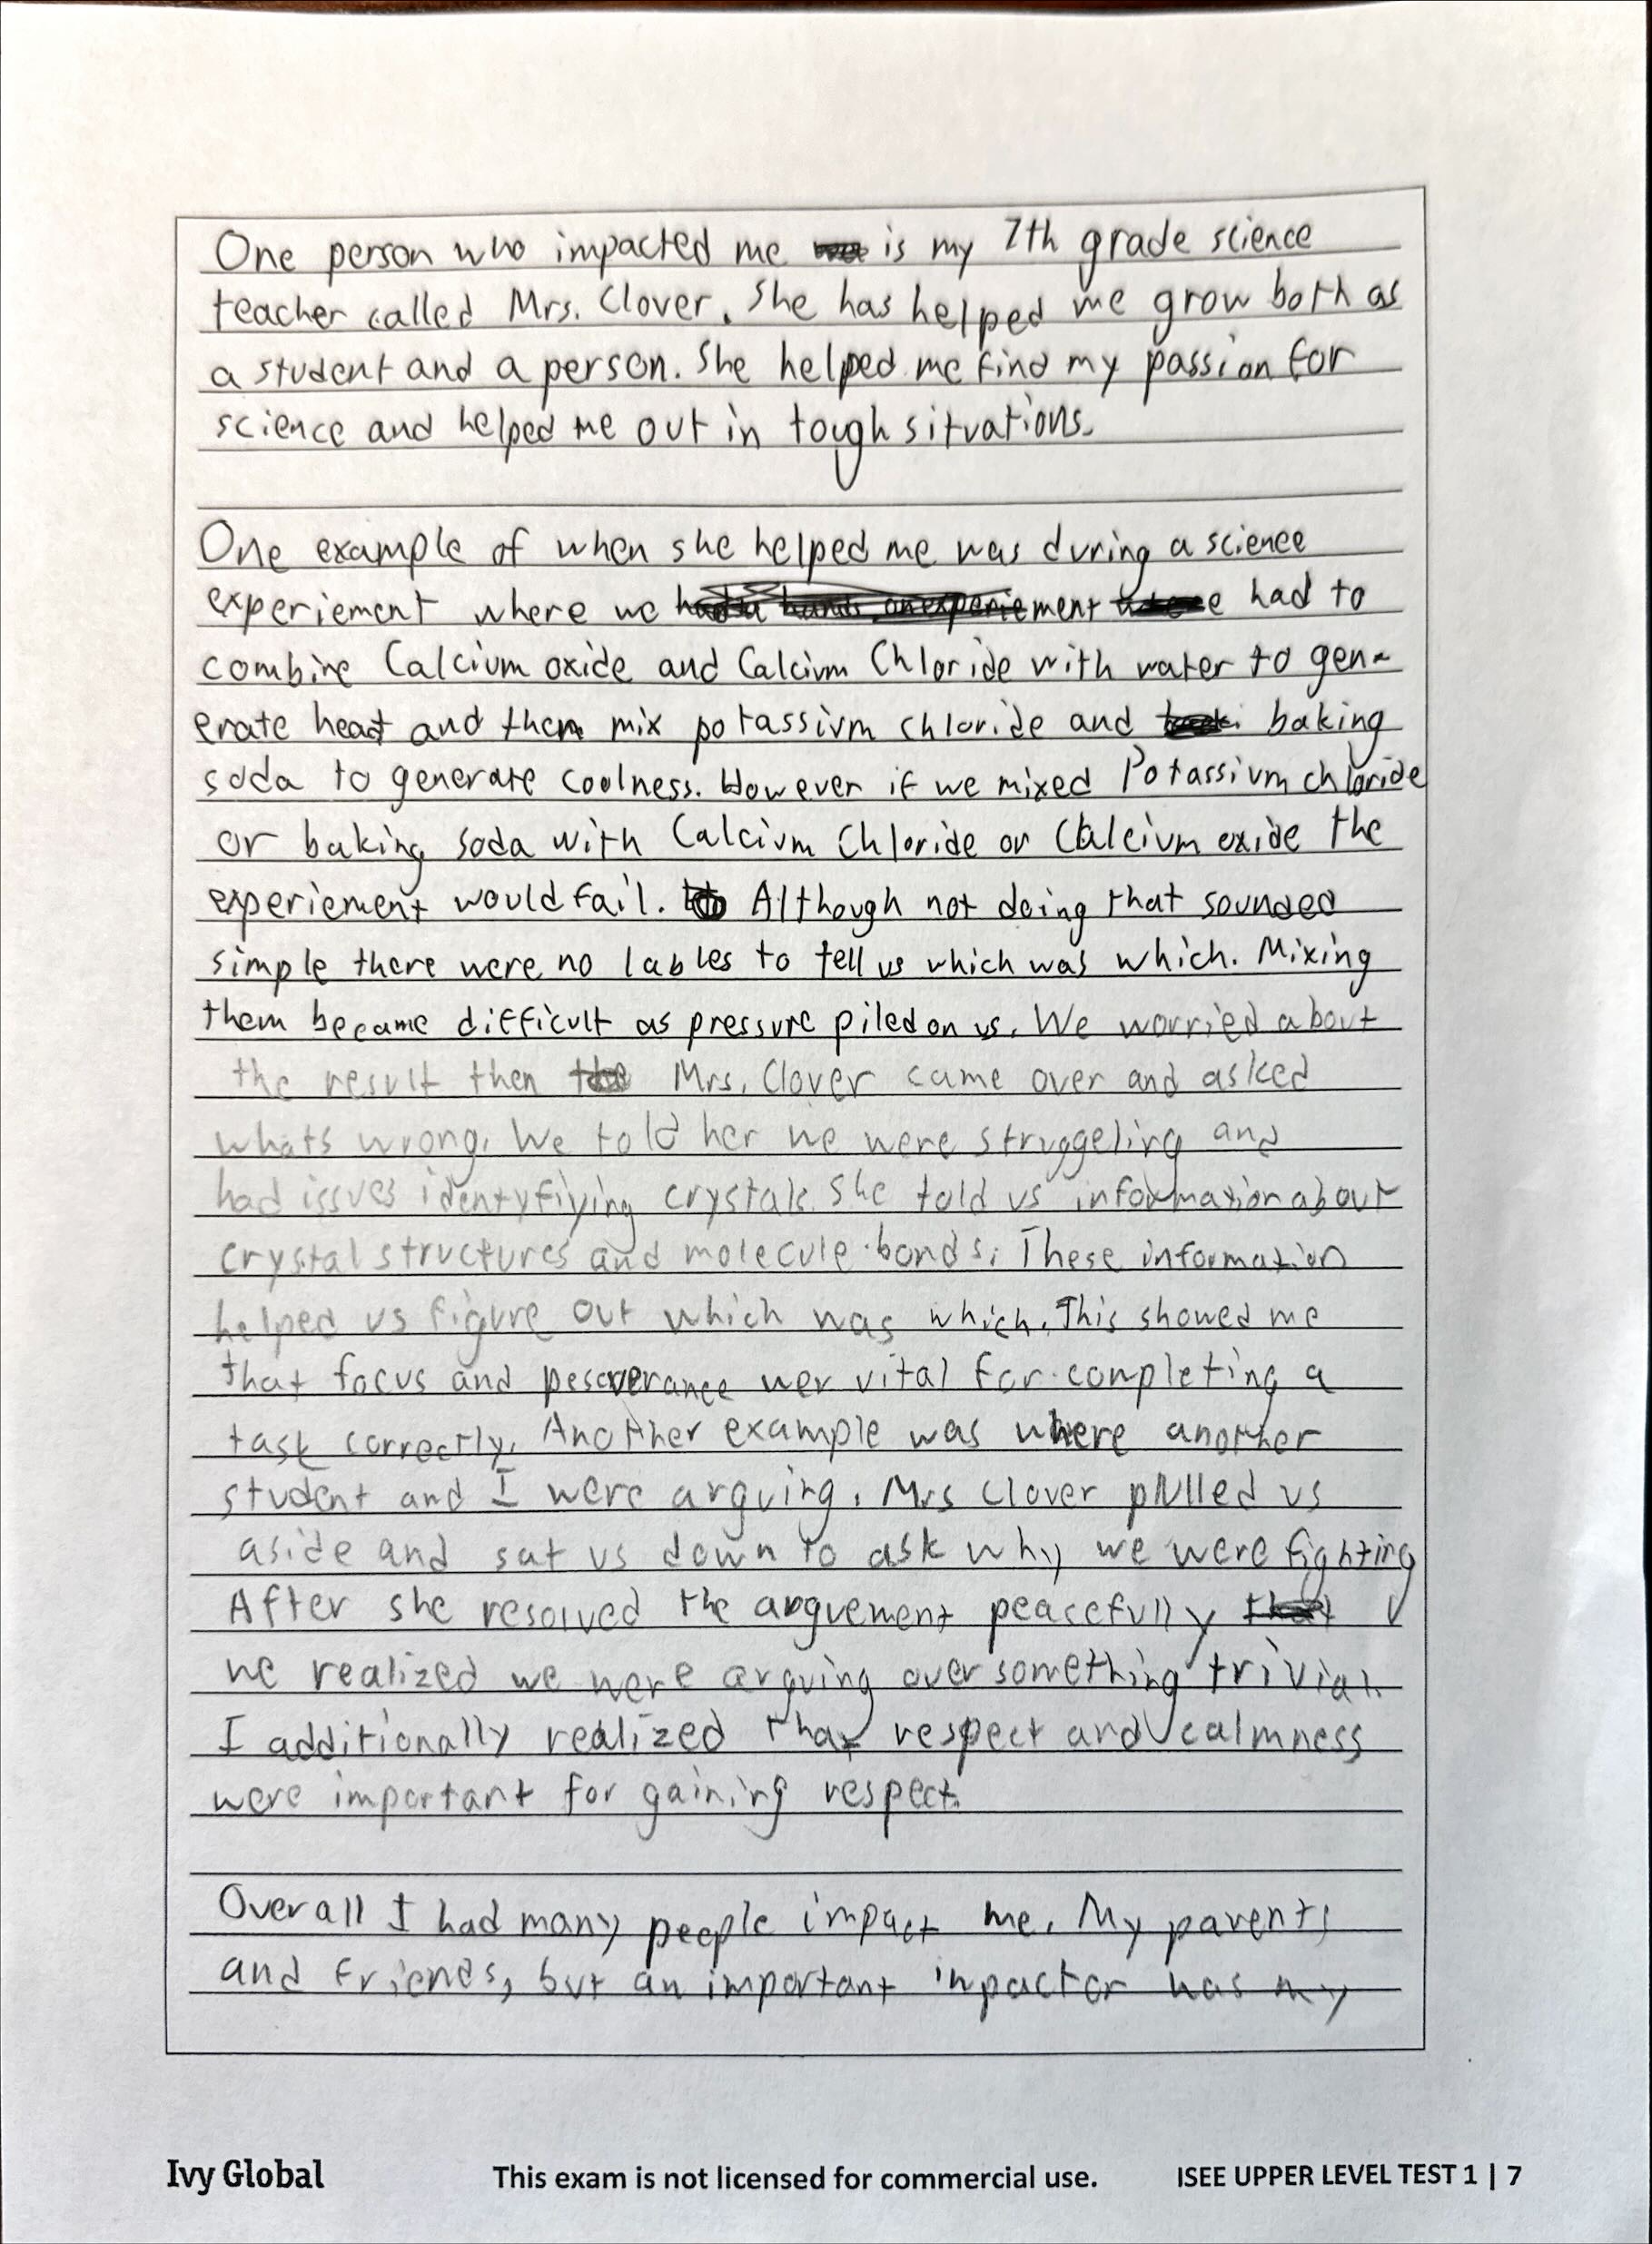 One person who impacted me is my 7th grade science
teacher called Mrs. Clover. She has helped me grow both as
a student and a person. She helped me find my passion for
science and helped me out in tough situations.
One example of when she helped me was during a science
experiement where we had to
combine Calcium oxide and Calcium Chloride with water to gen-
erate heat and then mix potassium chloride and baking
soda to generate coolness. However if we mixed Potassium chloride
or baking soda with Calcium Chloride or Calcium oxide the
experiement would fail. Although not doing that sounded
simple there were no lables to tell us which was which. Mixing
them became difficult as pressure piled on us. We worried about
the result then Mrs. Clover came over and asked
whats wrong. We told her we were struggeling and
had issues identyfiying crystals. She told us information about
crystal structures and molecule bonds. These information
helped us figure out which was which. This showed me
that focus and pesaverance wer vital for completing a
task correctly. Another example was where another
student and I were arguing. Mrs Clover pulled us
aside and sat us down to ask why we were fighting
After she resolved the arguement peacefully
we realized we were arguing over something trivial.
I additionally realized that respect and calmness
were important for gaining respect.
Overall I had many people impact me. My parents
and friends, but an important inpactor was my
Ivy Global This exam is not licensed for commercial use. ISEE UPPER LEVEL TEST 1 | 7